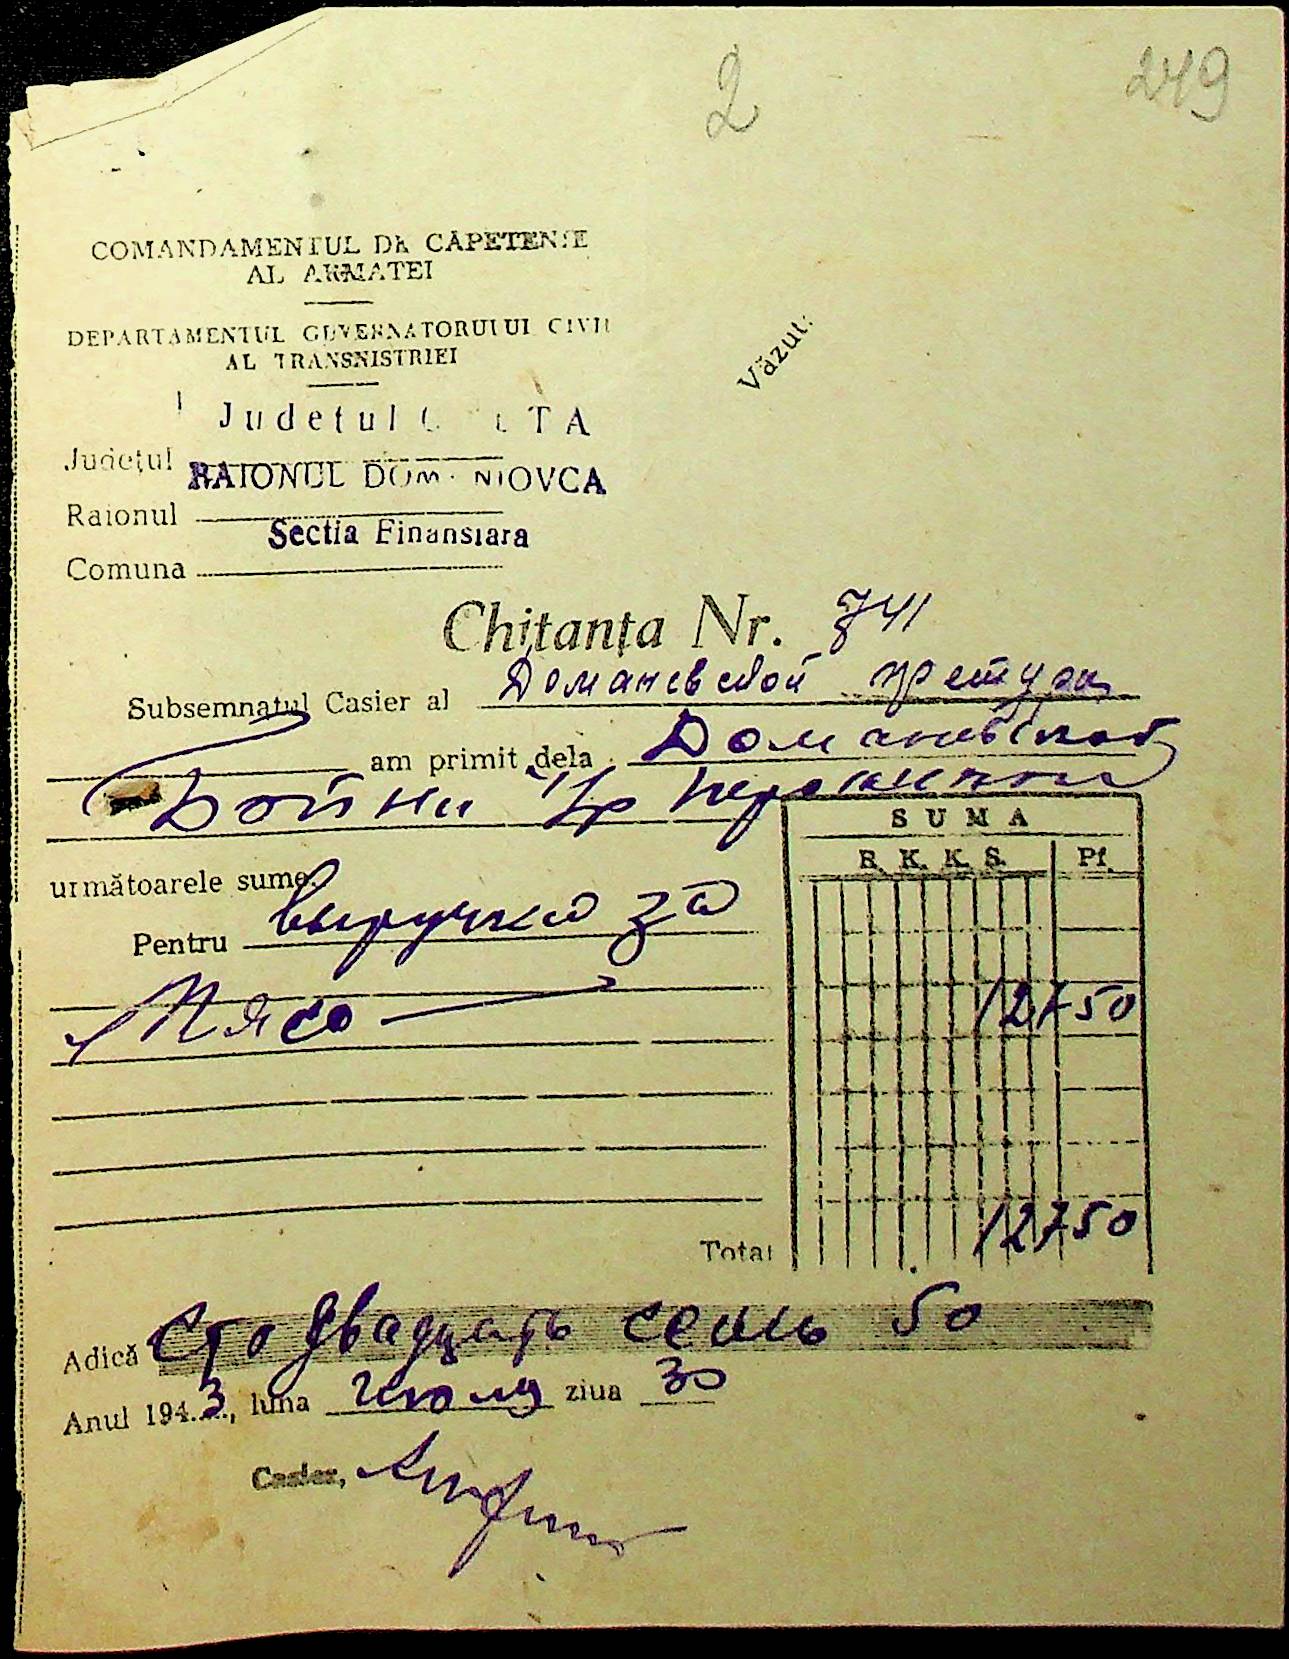 2
249
COMANDAMENTUL DE CĂPETENIE
AL ARMATEI
DEPARTAMENTUL GUVERNATORULUI CIVIL
AL TRANSNISTRIEI
Văzut:
Județul TA
Județul
RAIONUL DOM NIOVCA
Raionul
Sectia Finansiara
Comuna
Chitanța Nr. 741
Subsemnatul Casier al Доманевской претуры
am primit dela Доманевской
Бойни
SUMA
R. K. K. S. Pf.
următoarele sume
Pentru выручка за
Мясо
127 50
Total 127 50
Adică Сто двадцать семь 50
Anul 1943, luna Июля ziua 30
Casier,